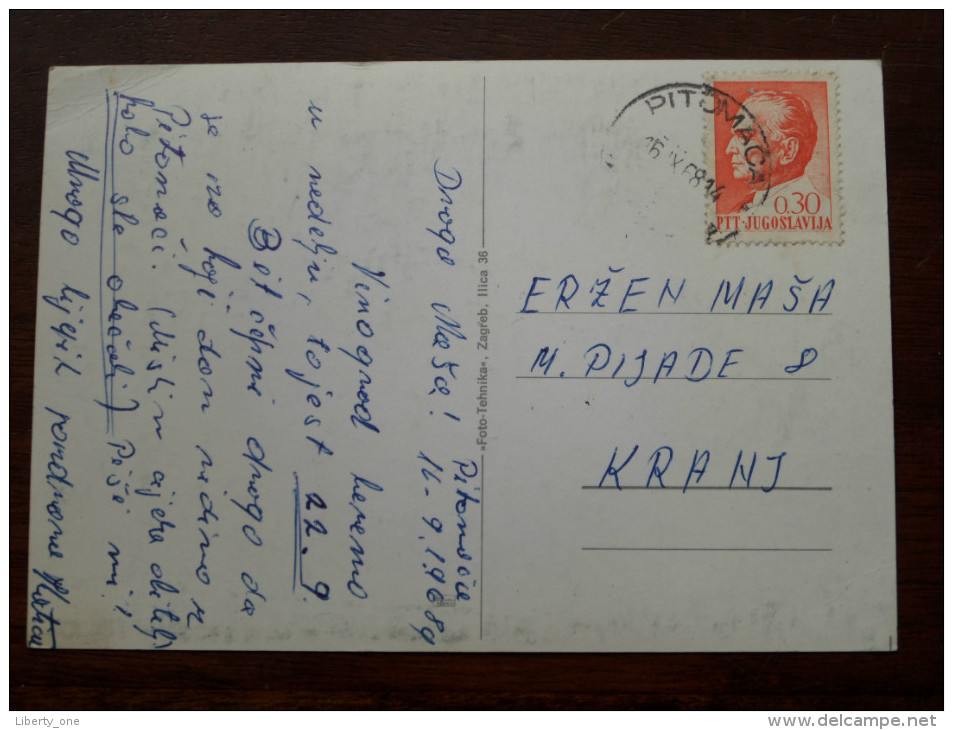 Pitomača
16. 9. 1968 g
Drago Maša!
Vinograd beremo
u nedelju, to jest 22. 9.
Bit će mi drago da
se na koji dan vidimo u
Pitomači. (Mislim cijela obitelj
kako ste obećali) Piši mi,
Mnogo lijepih pozdrava
»Foto-Tehnika«, Zagreb, Ilica 36
PITOMAČA
16.IX.68.14
0,30
PTT·JUGOSLAVIJA
ERŽEN MAŠA
M. PIJADE 8
KRANJ
Liberty_one
www.delcampe.net